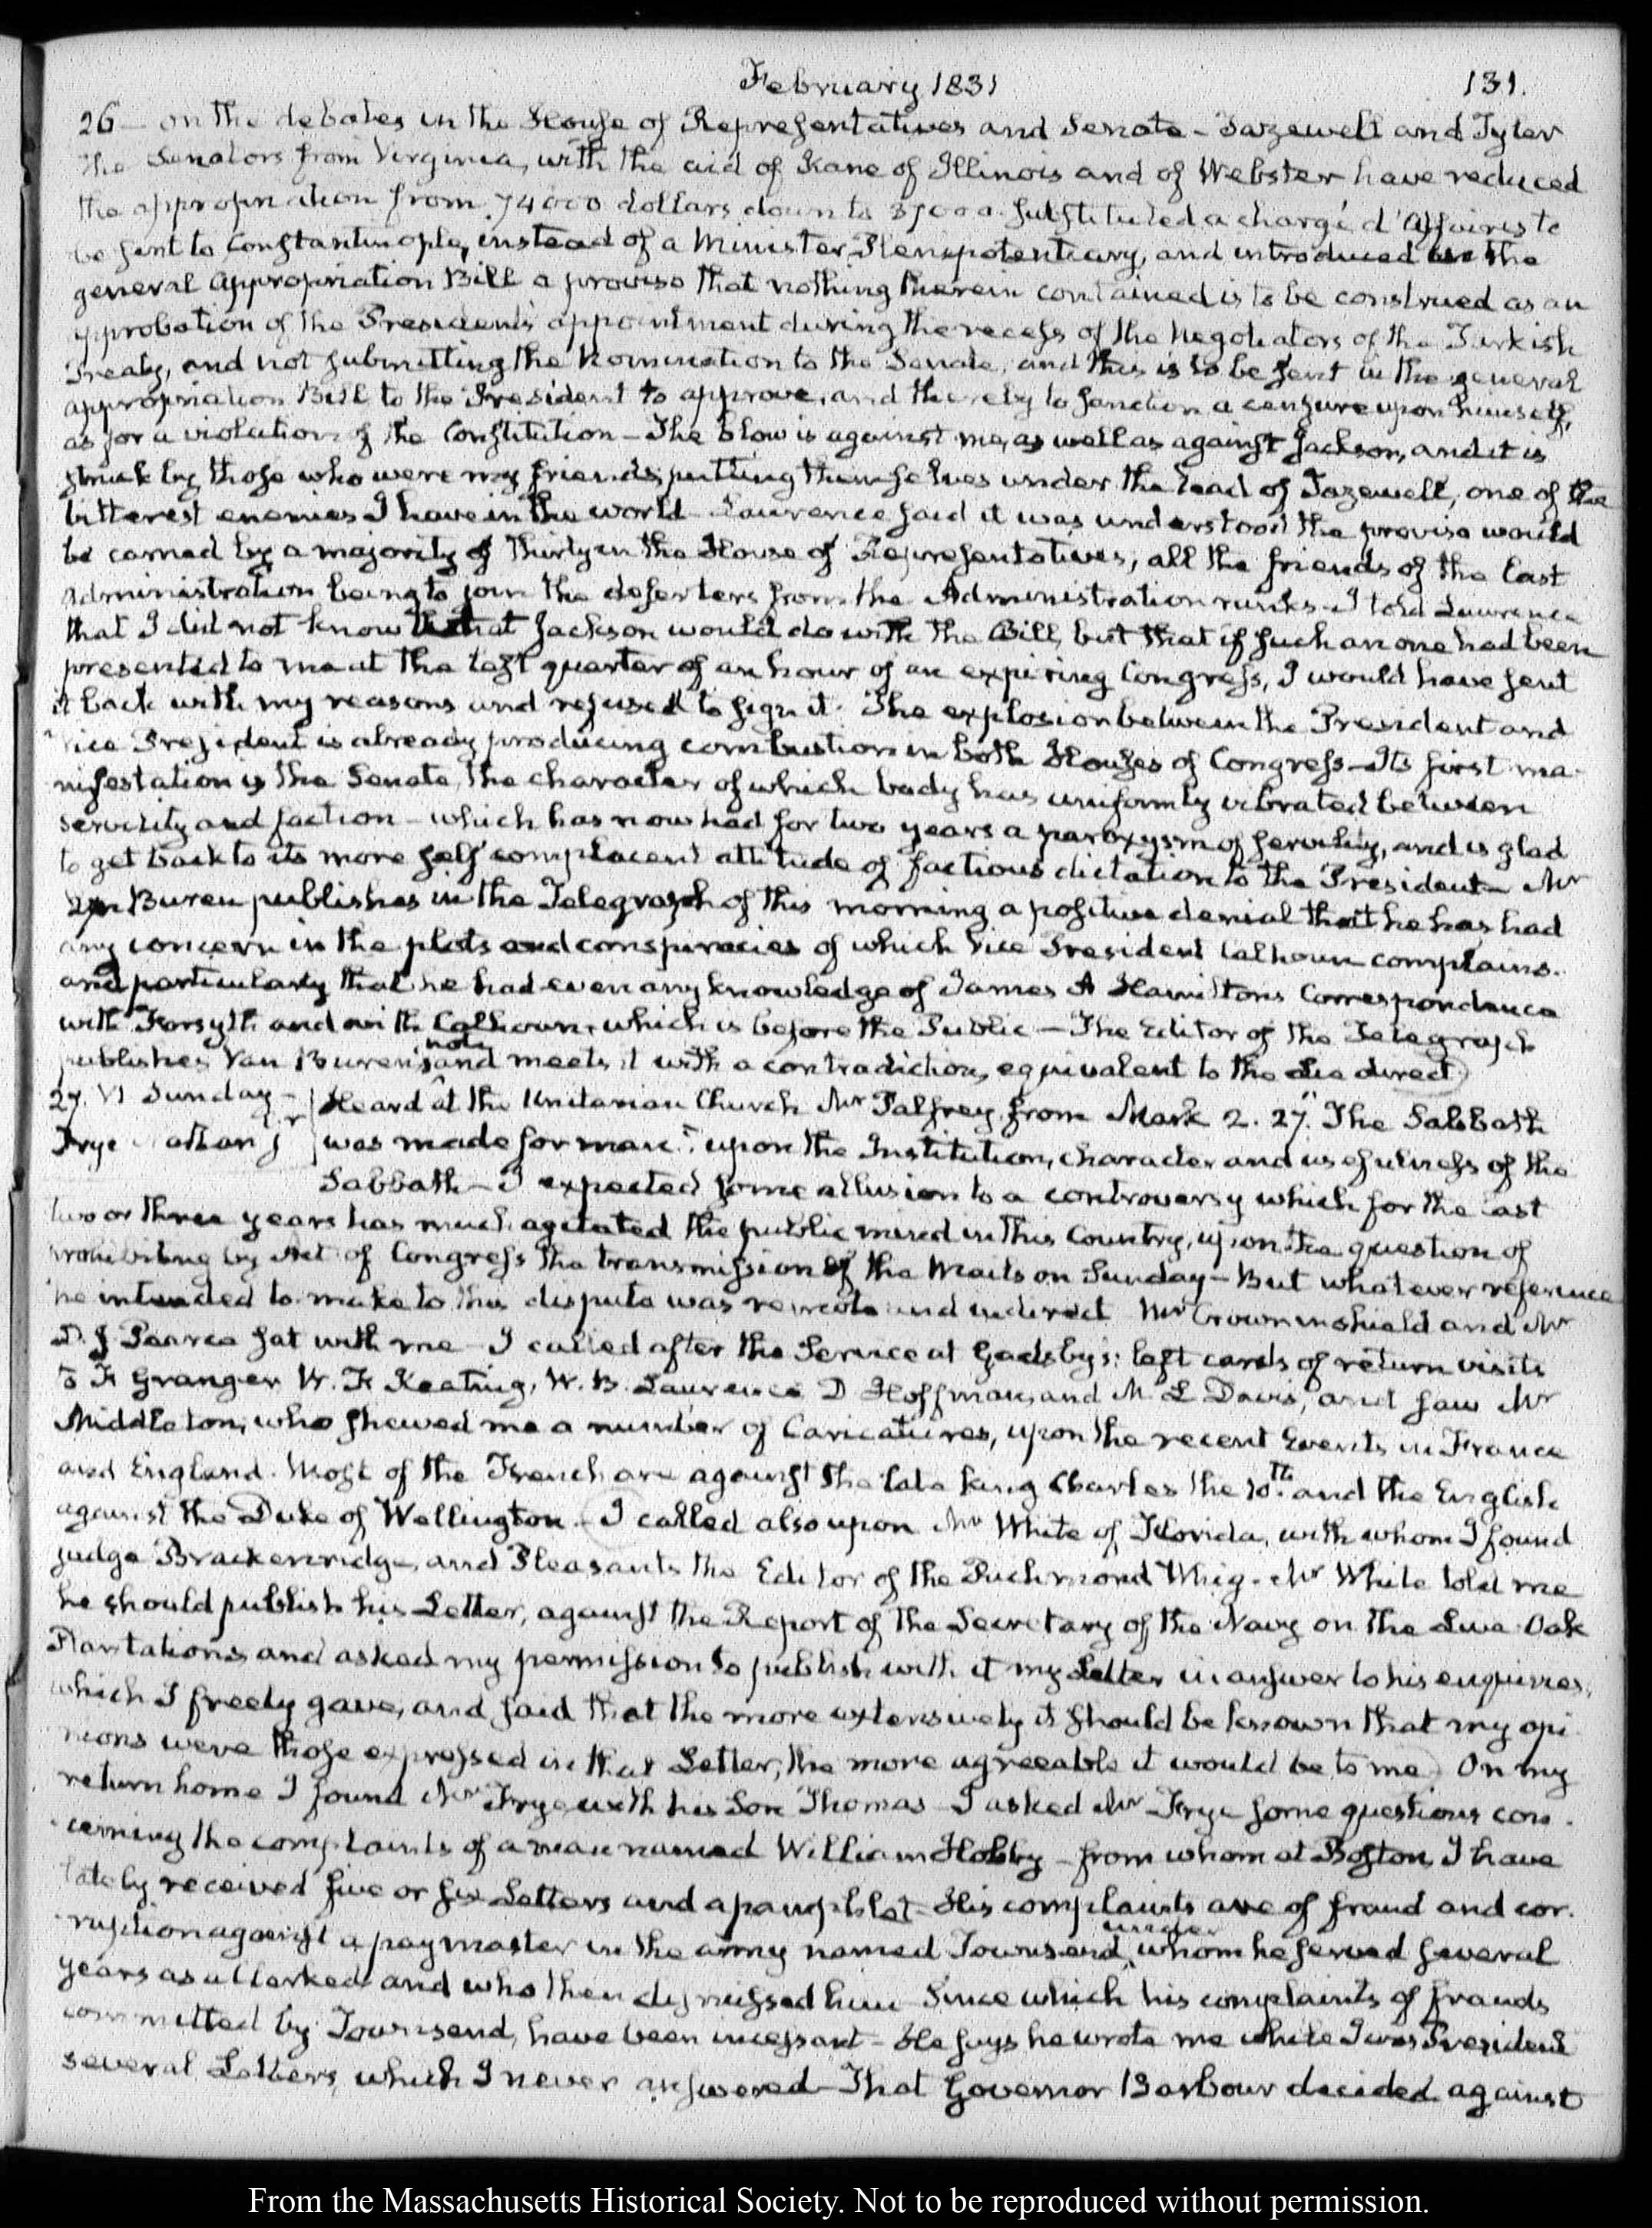 February 1831
131.
26 — on the debates in the House of Representatives and Senate — Tazewell and Tyler
The Senators from Virginia, with the aid of Kane of Illinois and of Webster have reduced
the appropriation from 74000 dollars down to substituted a chargé d'Affaires to
be sent to Constantinople, instead of a Minister Plenipotentiary, and introduced the
general Appropriation Bill a proviso that nothing therein contained is to be construed as an
approbation of the President's appointment during the recess of the Negotiators of the Turkish
Treaty, and not submitting the Nomination to the Senate, and this is to be sent in the general
appropriation Bill to the President to approve, and thereby to sanction a censure upon himself,
as for a violation of the Constitution — The blow is against me, as well as against Jackson, and it is
struck by those who were my friends, putting themselves under the lead of Tazewell, one of the
bitterest enemies I have in the world — Lawrence said it was understood the proviso would
be carried by a majority of thirty in the House of Representatives, all the friends of the last
Administration being to join the deserters from the Administration ranks — I told Lawrence
that I did not know what Jackson would do with the Bill, but that if such an one had been
presented to me at the last quarter of an hour of an expiring Congress, I would have sent
it back with my reasons and refused to sign it. The explosion between the President and
Vice President is already producing combustion in both Houses of Congress — Its first ma-
nifestation is the Senate, the character of which body has uniformly vibrated between
servility and faction — which has now had for two years a paroxysm of servility, and is glad
to get back to its more self complacent attitude of factious dictation to the President — Mr
Van Buren publishes in the Telegraph of this morning a positive denial that he has had
any concern in the plots and conspiracies of which Vice President Calhoun complains.
and particularly that he had even any knowledge of James A Hamilton's Correspondence
with Forsyth and with Calhoun, which is before the Public — The Editor of the Telegraph
publishes Van Buren's note and meets it with a contradiction, equivalent to the Lie direct
27. VI Sunday —
Frye Nathan Jr
Heard at the Unitarian Church Mr Palfrey from Mark 2. 27. "The Sabbath
was made for man": upon the Institution, character and usefulness of the
Sabbath — I expected some allusion to a controversy which for the last
two or three years has much agitated the public mind in this Country, upon the question of
prohibiting by Act of Congress the transmission of the Mails on Sunday — But whatever reference
he intended to make to this dispute was remote and indirect Mr Crowninshield and Mr
D. J Pearce sat with me — I called after the Service at Gadsby's: left cards of return visits
to F. Granger W. H Keating, W. B. Lawrence D Hoffman, and M. L Davis, and saw Mr
Middleton, who shewed me a number of Caricatures, upon the recent Events in France
and England. Most of the French are against the late king Charles the 10th. and the English
against the Duke of Wellington — I called also upon Mr White of Florida, with whom I found
judge Brackenridge, and Pleasants the Editor of the Richmond Whig. Mr White told me
he should publish his Letter, against the Report of the Secretary of the Navy on the Live Oak
Plantations and asked my permission to publish with it my Letter in answer to his enquiries,
which I freely gave, and said that the more extensively it should be known that my opi-
nions were those expressed in that Letter, the more agreeable it would be to me. On my
return home I found Mr Frye with his Son Thomas — I asked Mr Frye some questions con-
cerning the complaints of a man named William Hobby — from whom at Boston, I have
lately received five or six Letters and a pamphlet — His complaints are of fraud and cor-
ruption against a paymaster in the army named Townsend, under whom he served several
years as a Clerk and who then dismissed him — Since which his complaints of frauds
committed by Townsend, have been incessant — He says he wrote me while I was President
several Letters, which I never answered — That Governor Barbour decided against
From the Massachusetts Historical Society. Not to be reproduced without permission.